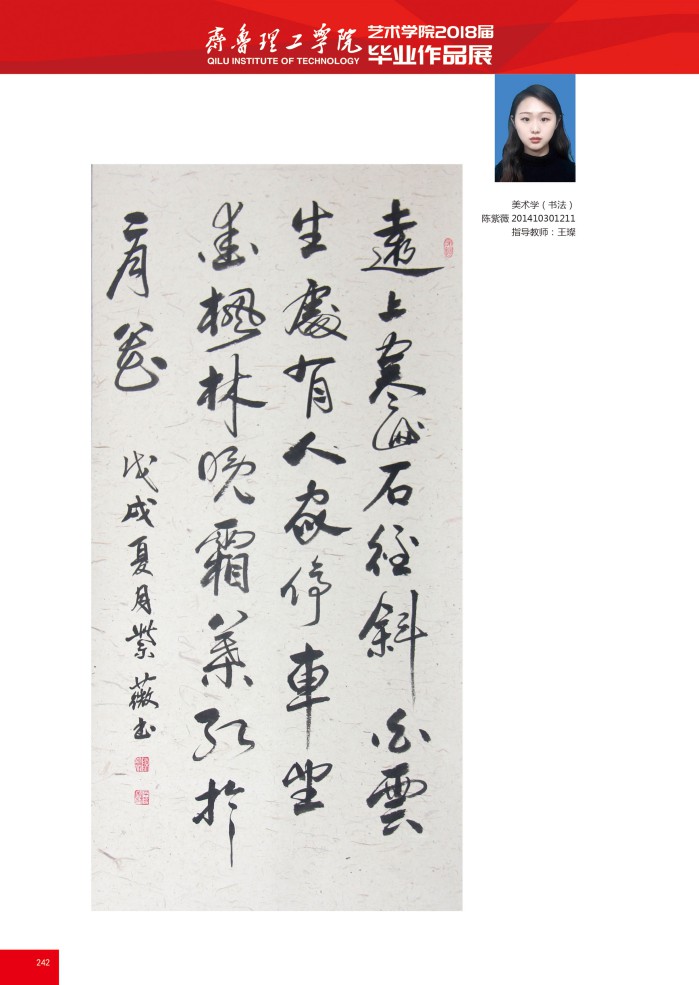 齊魯理工學院
QILU INSTITUTE OF TECHNOLOGY
艺术学院2018届
毕业作品展
美术学（书法）
陈紫薇 201410301211
指导教师：王璨
遠上寒山石径斜白雲
生處有人家停車坐
愛楓林晚霜葉红於
二月花
戊戌夏月紫薇书
242